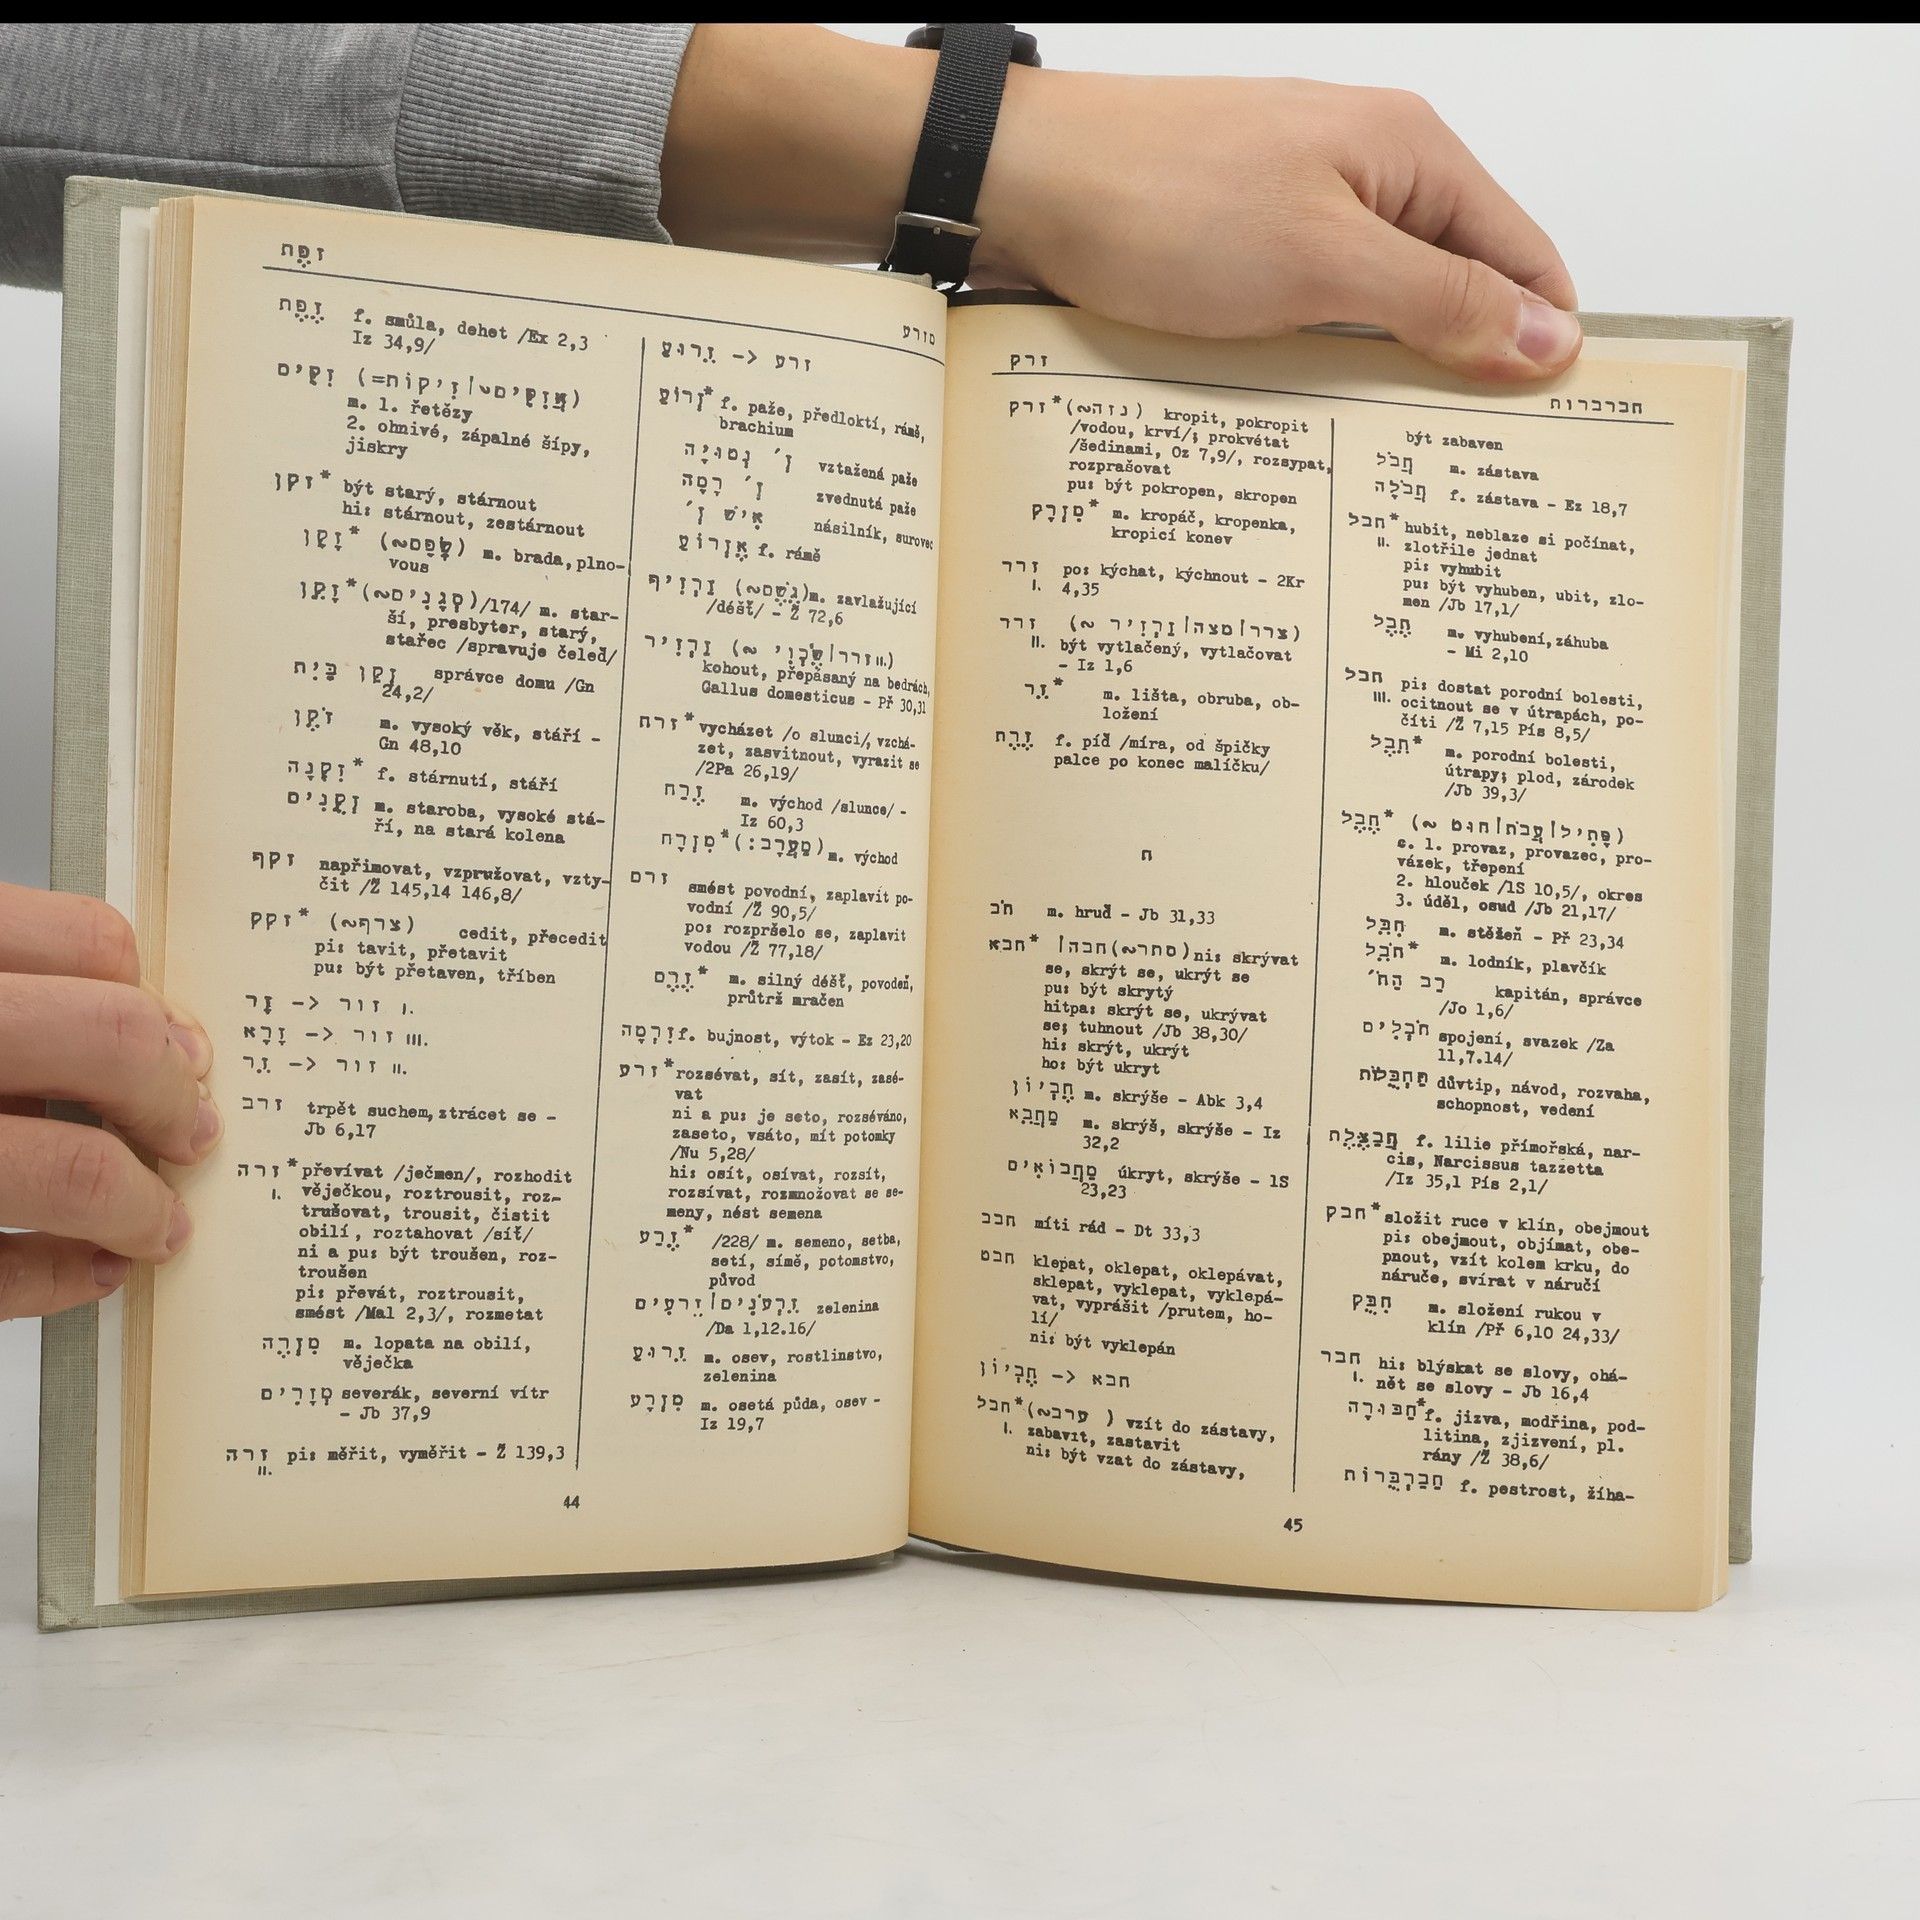 זפת
מזרע
זֶפֶת f. smůla, dehet /Ex 2,3
Iz 34,9/
זִקִּים (=אֲזִקִּים~|זִיקוֹת)
m. 1. řetězy
2. ohnivé, zápalné šípy,
jiskry
זקן* být starý, stárnout
hi: stárnout, zestárnout
זָקָן* (שָׂפָם~) m. brada, plno-
vous
זָקֵן* (סְגָנִים~) /174/ m. star-
ší, presbyter, starý,
stařec /spravuje čeleď/
זְקַן בַּיִת správce domu /Gn
24,2/
זֹקֶן m. vysoký věk, stáří -
Gn 48,10
זִקְנָה* f. stárnutí, stáří
זְקֻנִים m. staroba, vysoké stá-
ří, na stará kolena
זקף napřimovat, vzpružovat, vzty-
čit /Ž 145,14 146,8/
זקק* (צרף~) cedit, přecedit
pi: tavit, přetavit
pu: být přetaven, tříben
זָר -> זור I.
זָרָא -> זור III.
זֵר -> זור II.
זרב trpět suchem, ztrácet se -
Jb 6,17
זרה* převívat /ječmen/, rozhodit
I. věječkou, roztrousit, roz-
trušovat, trousit, čistit
obilí, roztahovat /síť/
ni a pu: být troušen, roz-
troušen
pi: převát, roztrousit,
smést /Mal 2,3/, rozmetat
מִזְרֶה m. lopata na obilí,
věječka
מְזָרִים severák, severní vítr
- Jb 37,9
זרה pi: měřit, vyměřit - Ž 139,3
II.
זֵרוּעַ <- זרע
זְרוֹעַ* f. paže, předloktí, rámě,
brachium
ז' נְטוּיָה vztažená paže
ז' רָמָה zvednutá paže
אִישׁ ז' násilník, surovec
אֶזְרוֹעַ f. rámě
זַרְזִיף (גֶּשֶׁם~) m. zavlažující
/déšť/ - Ž 72,6
זַרְזִיר (~ שֶׂכְוִי|זרר II.)
kohout, přepásaný na bedrách,
Gallus domesticus - Př 30,31
זרח* vycházet /o slunci/, vzchá-
zet, zasvitnout, vyrazit se
/2Pa 26,19/
זֶרַח m. východ /slunce/ -
Iz 60,3
מִזְרָח* (מַעֲרָב:) m. východ
זרם smést povodní, zaplavit po-
vodní /Ž 90,5/
po: rozpršelo se, zaplavit
vodou /Ž 77,18/
זֶרֶם* m. silný déšť, povodeň,
průtrž mračen
זִרְמָה f. bujnost, výtok - Ez 23,20
זרע* rozsévat, sít, zasít, zasé-
vat
ni a pu: je seto, rozséváno,
zaseto, vsáto, mít potomky
/Nu 5,28/
hi: osít, osívat, rozsít,
rozsívat, rozmnožovat se se-
meny, nést semena
זֶרַע* /228/ m. semeno, setba,
setí, símě, potomstvo,
původ
זֵרְעֹנִים|זֵרֹעִים zelenina
/Da 1,12.16/
זֵרוּעַ m. osev, rostlinstvo,
zelenina
מִזְרָע m. osetá půda, osev -
Iz 19,7
44
זרק
חברברות
זרק* (נזה~) kropit, pokropit
/vodou, krví/; prokvétat
/šedinami, Oz 7,9/, rozsypat,
rozprašovat
pu: být pokropen, skropen
מִזְרָק* m. kropáč, kropenka,
kropicí konev
זרר po: kýchat, kýchnout - 2Kr
I. 4,35
זרר (~ צרר|מצה|זַרְזִיר)
II. být vytlačený, vytlačovat
- Iz 1,6
זֵר* m. lišta, obruba, ob-
ložení
זֶרֶת f. píď /míra, od špičky
palce po konec malíčku/
ח
חֹב m. hruď - Jb 31,33
חבא* |חבה(סתר~) ni: skrývat
se, skrýt se, ukrýt se
pu: být skrytý
hitpa: skrýt se, ukrývat
se; tuhnout /Jb 38,30/
hi: skrýt, ukrýt
ho: být ukryt
חֶבְיוֹן m. skrýše - Abk 3,4
מַחֲבֵא m. skrýš, skrýše - Iz
32,2
מַחֲבוֹאִים úkryt, skrýše - 1S
23,23
חבב míti rád - Dt 33,3
חבט klepat, oklepat, oklepávat,
sklepat, vyklepat, vyklepá-
vat, vyprášit /prutem, ho-
lí/
ni: být vyklepán
חֶבְיוֹן <- חבא
חבל* (ערב~) vzít do zástavy,
I. zabavit, zastavit
ni: být vzat do zástavy,
být zabaven
חֲבֹל m. zástava
חֲבֹלָה f. zástava - Ez 18,7
חבל* hubit, neblaze si počínat,
II. zlotřile jednat
pi: vyhubit
pu: být vyhuben, ubit, zlo-
men /Jb 17,1/
חֶבֶל m. vyhubení, záhuba
- Mi 2,10
חבל pi: dostat porodní bolesti,
III. ocitnout se v útrapách, po-
číti /Ž 7,15 Pís 8,5/
חֵבֶל* m. porodní bolesti,
útrapy; plod, zárodek
/Jb 39,3/
חֶבֶל* (~ פָּתִיל|עֲבֹת|חוּט)
c. 1. provaz, provazec, pro-
vázek, třepení
2. hlouček /1S 10,5/, okres
3. úděl, osud /Jb 21,17/
חִבֵּל m. stěžeň - Př 23,34
חֹבֵל* m. lodník, plavčík
רַב הַח' kapitán, správce
/Jo 1,6/
חֹבְלִים spojení, svazek /Za
11,7.14/
תַּחְבֻּלוֹת důvtip, návod, rozvaha,
schopnost, vedení
חֲבַצֶּלֶת f. lilie přímořská, nar-
cis, Narcissus tazzetta
/Iz 35,1 Pís 2,1/
חבק* složit ruce v klín, obejmout
pi: obejmout, objímat, obe-
pnout, vzít kolem krku, do
náruče, svírat v náručí
חִבֻּק m. složení rukou v
klín /Př 6,10 24,33/
חבר hi: blýskat se slovy, ohá-
I. nět se slovy - Jb 16,4
חַבּוּרָה* f. jizva, modřina, pod-
litina, zjizvení, pl.
rány /Ž 38,6/
חֲבַרְבֻּרוֹת f. pestrost, žíha-
45